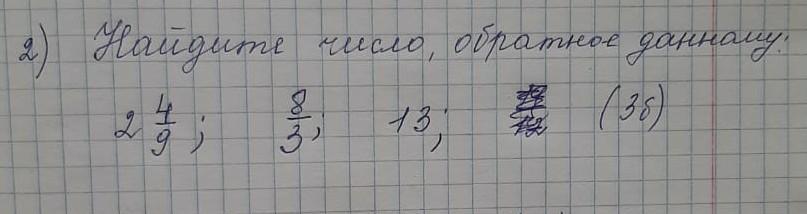 2) Найдите число, обратное данному:
2 4/9; 8/3; 13; (3б)